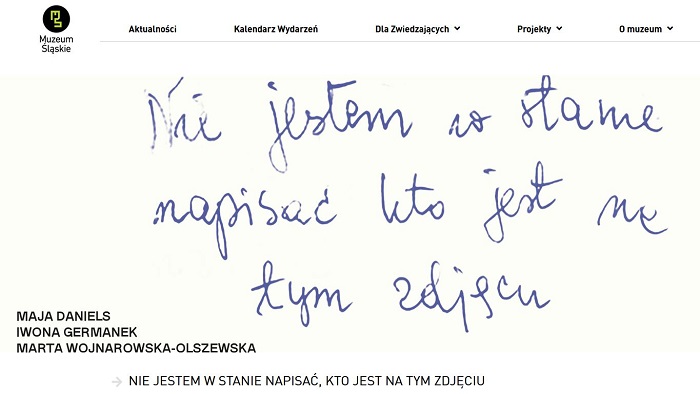 Muzeum
Śląskie
Aktualności
Kalendarz Wydarzeń
Dla Zwiedzających
Projekty
O muzeum
Nie jestem w stanie
napisać kto jest na
tym zdjęciu
MAJA DANIELS
IWONA GERMANEK
MARTA WOJNAROWSKA-OLSZEWSKA
NIE JESTEM W STANIE NAPISAĆ, KTO JEST NA TYM ZDJĘCIU